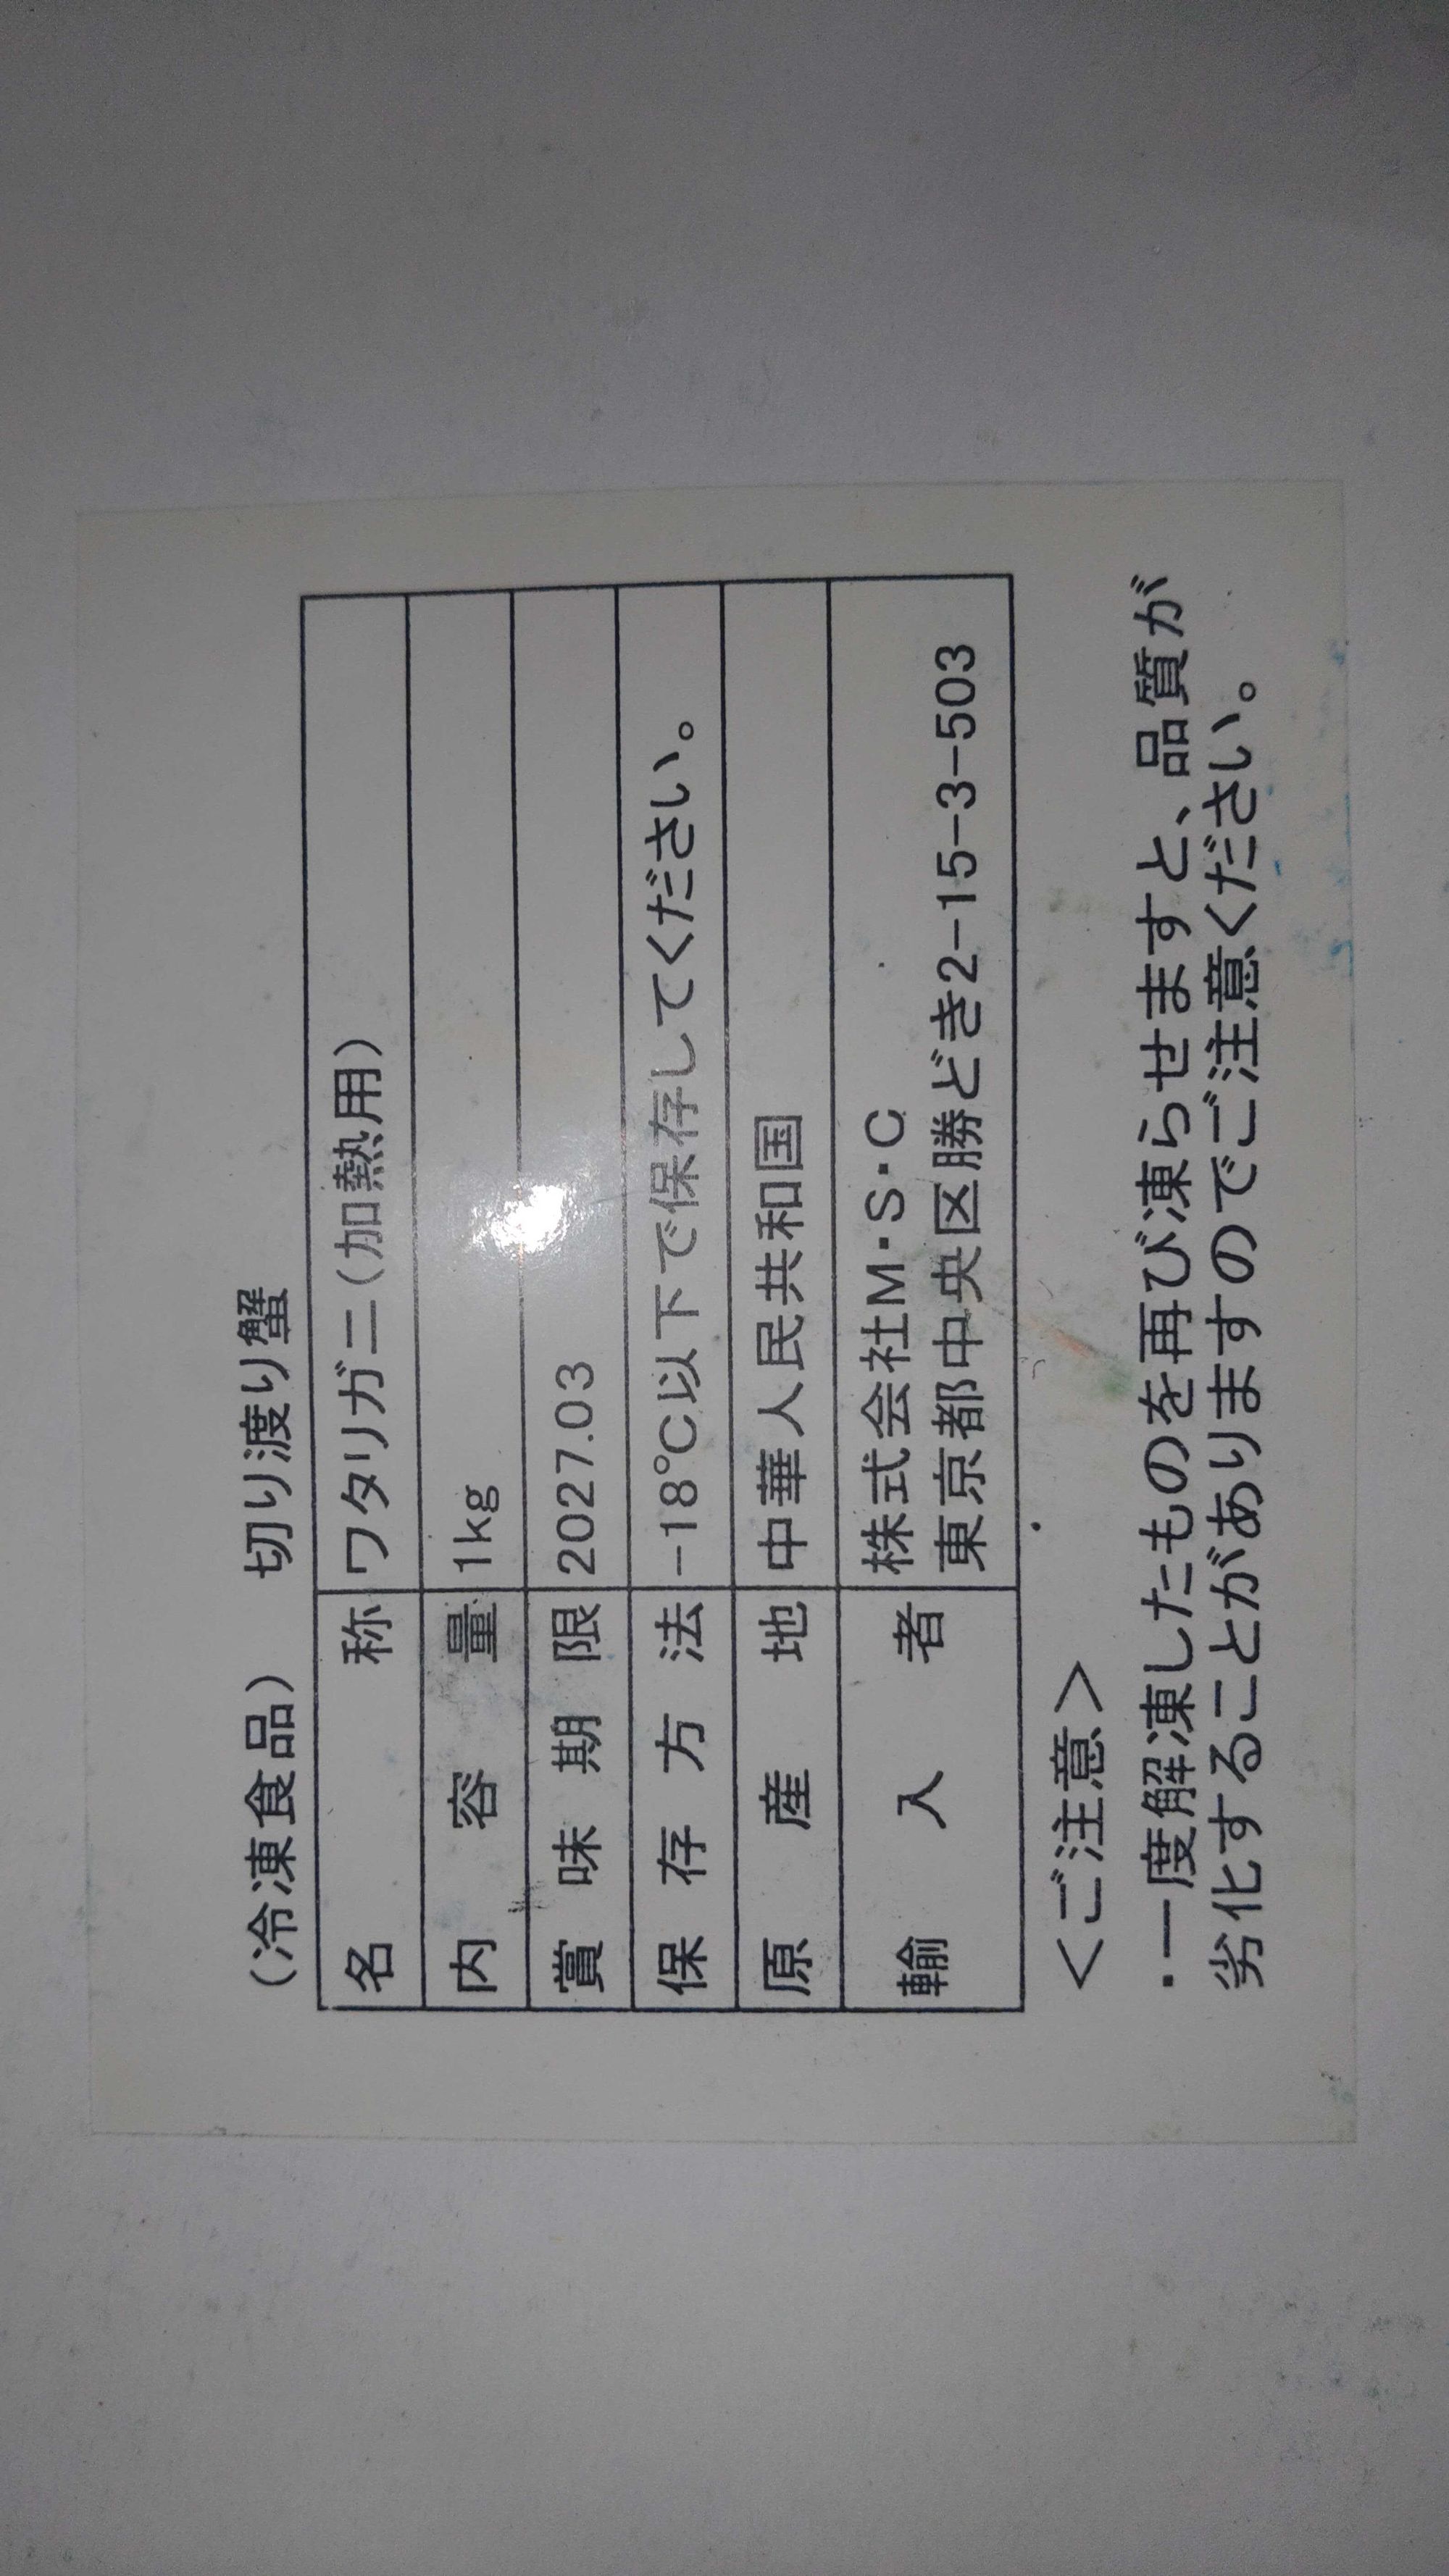 (冷凍食品) 切り渡り蟹
名称 ワタリガニ(加熱用)
内容量 1kg
賞味期限 2027.03
保存方法 -18℃以下で保存してください。
原産地 中華人民共和国
輸入者 株式会社M・S・C
東京都中央区勝どき2-15-3-503
<ご注意>
・一度解凍したものを再び凍らせますと、品質が
劣化することがありますのでご注意ください。